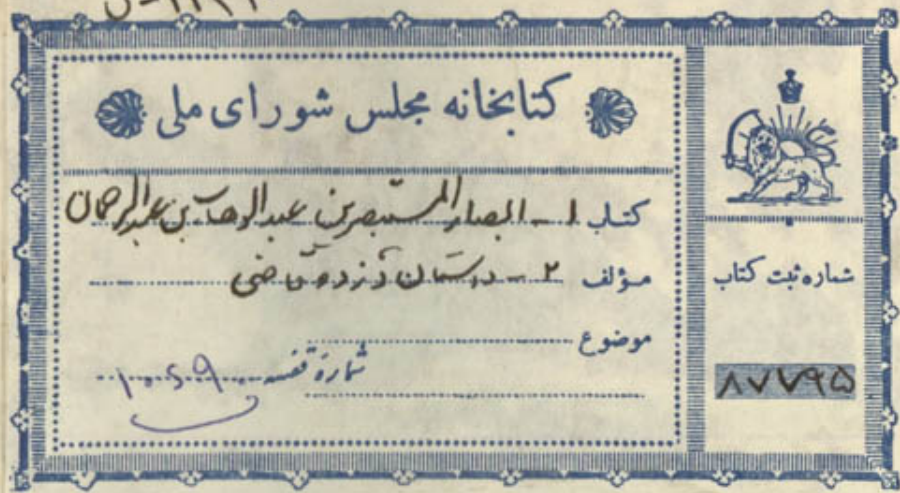 کتابخانه مجلس شورای ملی
کتاب ۱ - ابصار المستبصرین عبدالوهاب بن عبدالرحمان
مؤلف ۲ - داستان دزد و قاضی
موضوع
شمارهٔ قفسه ۱۰۶۹۰
شماره ثبت کتاب
۸۷۷۹۵